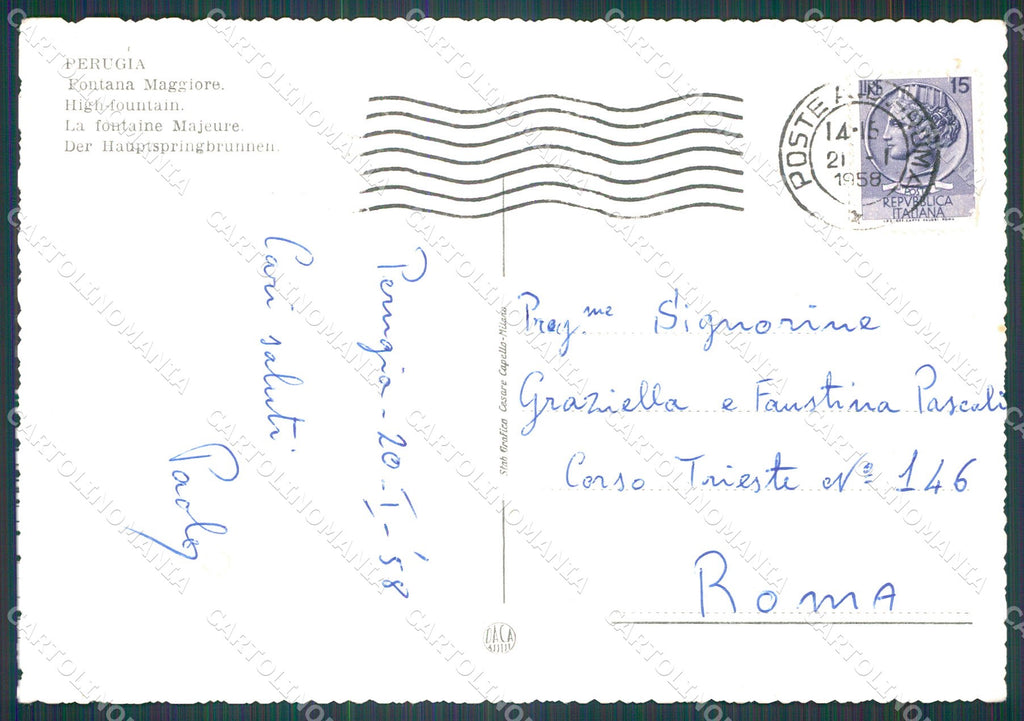 PERUGIA
Fontana Maggiore.
High-fountain.
La fontaine Majeure.
Der Hauptspringbrunnen.
POSTE
14-15
21 - 1
1958
LIRE 15
POSTE
REPVBBLICA
ITALIANA
Perugia - 20 - I - '58
Cari saluti.
Paolo
Stab Grafico Cesare Capello - Milano
DACA
Preg.me Signorine
Graziella e Faustina Pascali
Corso Trieste Nº 146
Roma
CARTOLINOMANIA